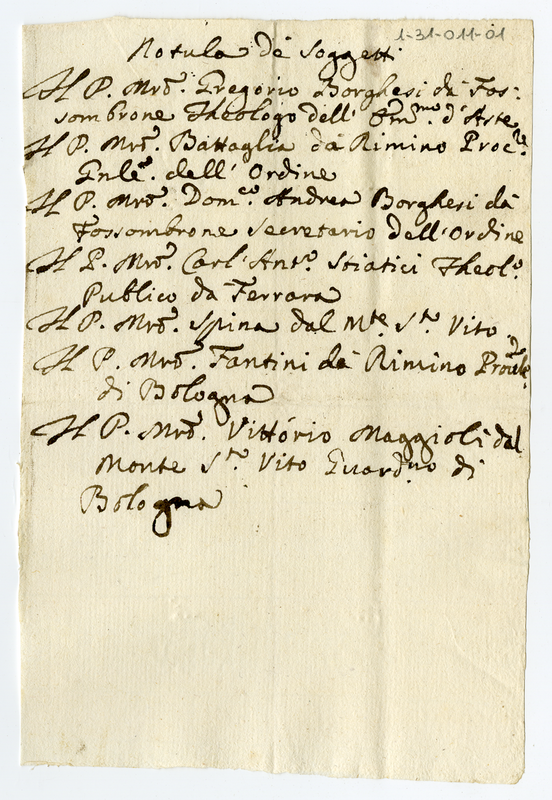 1-31-011-01
Notula dè Soggetti
Il P. Mrõ. Gregorio Borghesi dà Fos:
sombrone Theologo dell' Em.mo d'Aste
Il P. Mrõ. Battaglia dà Rimino Proc.re
Gnlẽ. dell' Ordine
Il P. Mrõ. Dom.co Andrea Borghesi dà
Fossombrone Secretario dell'Ordine
Il P. Mrõ. Carl'Ant.o Stiatici Theol.o
Publico dà Ferrara
Il P. Mrõ. Spina dal Mte S.to Vito
Il P. Mrõ. Fantini dà Rimino Proũle
di Bologna
Il P. Mrõ. Vittório Maggioli dal
Monte S.to Vito Guardño di
Bologna